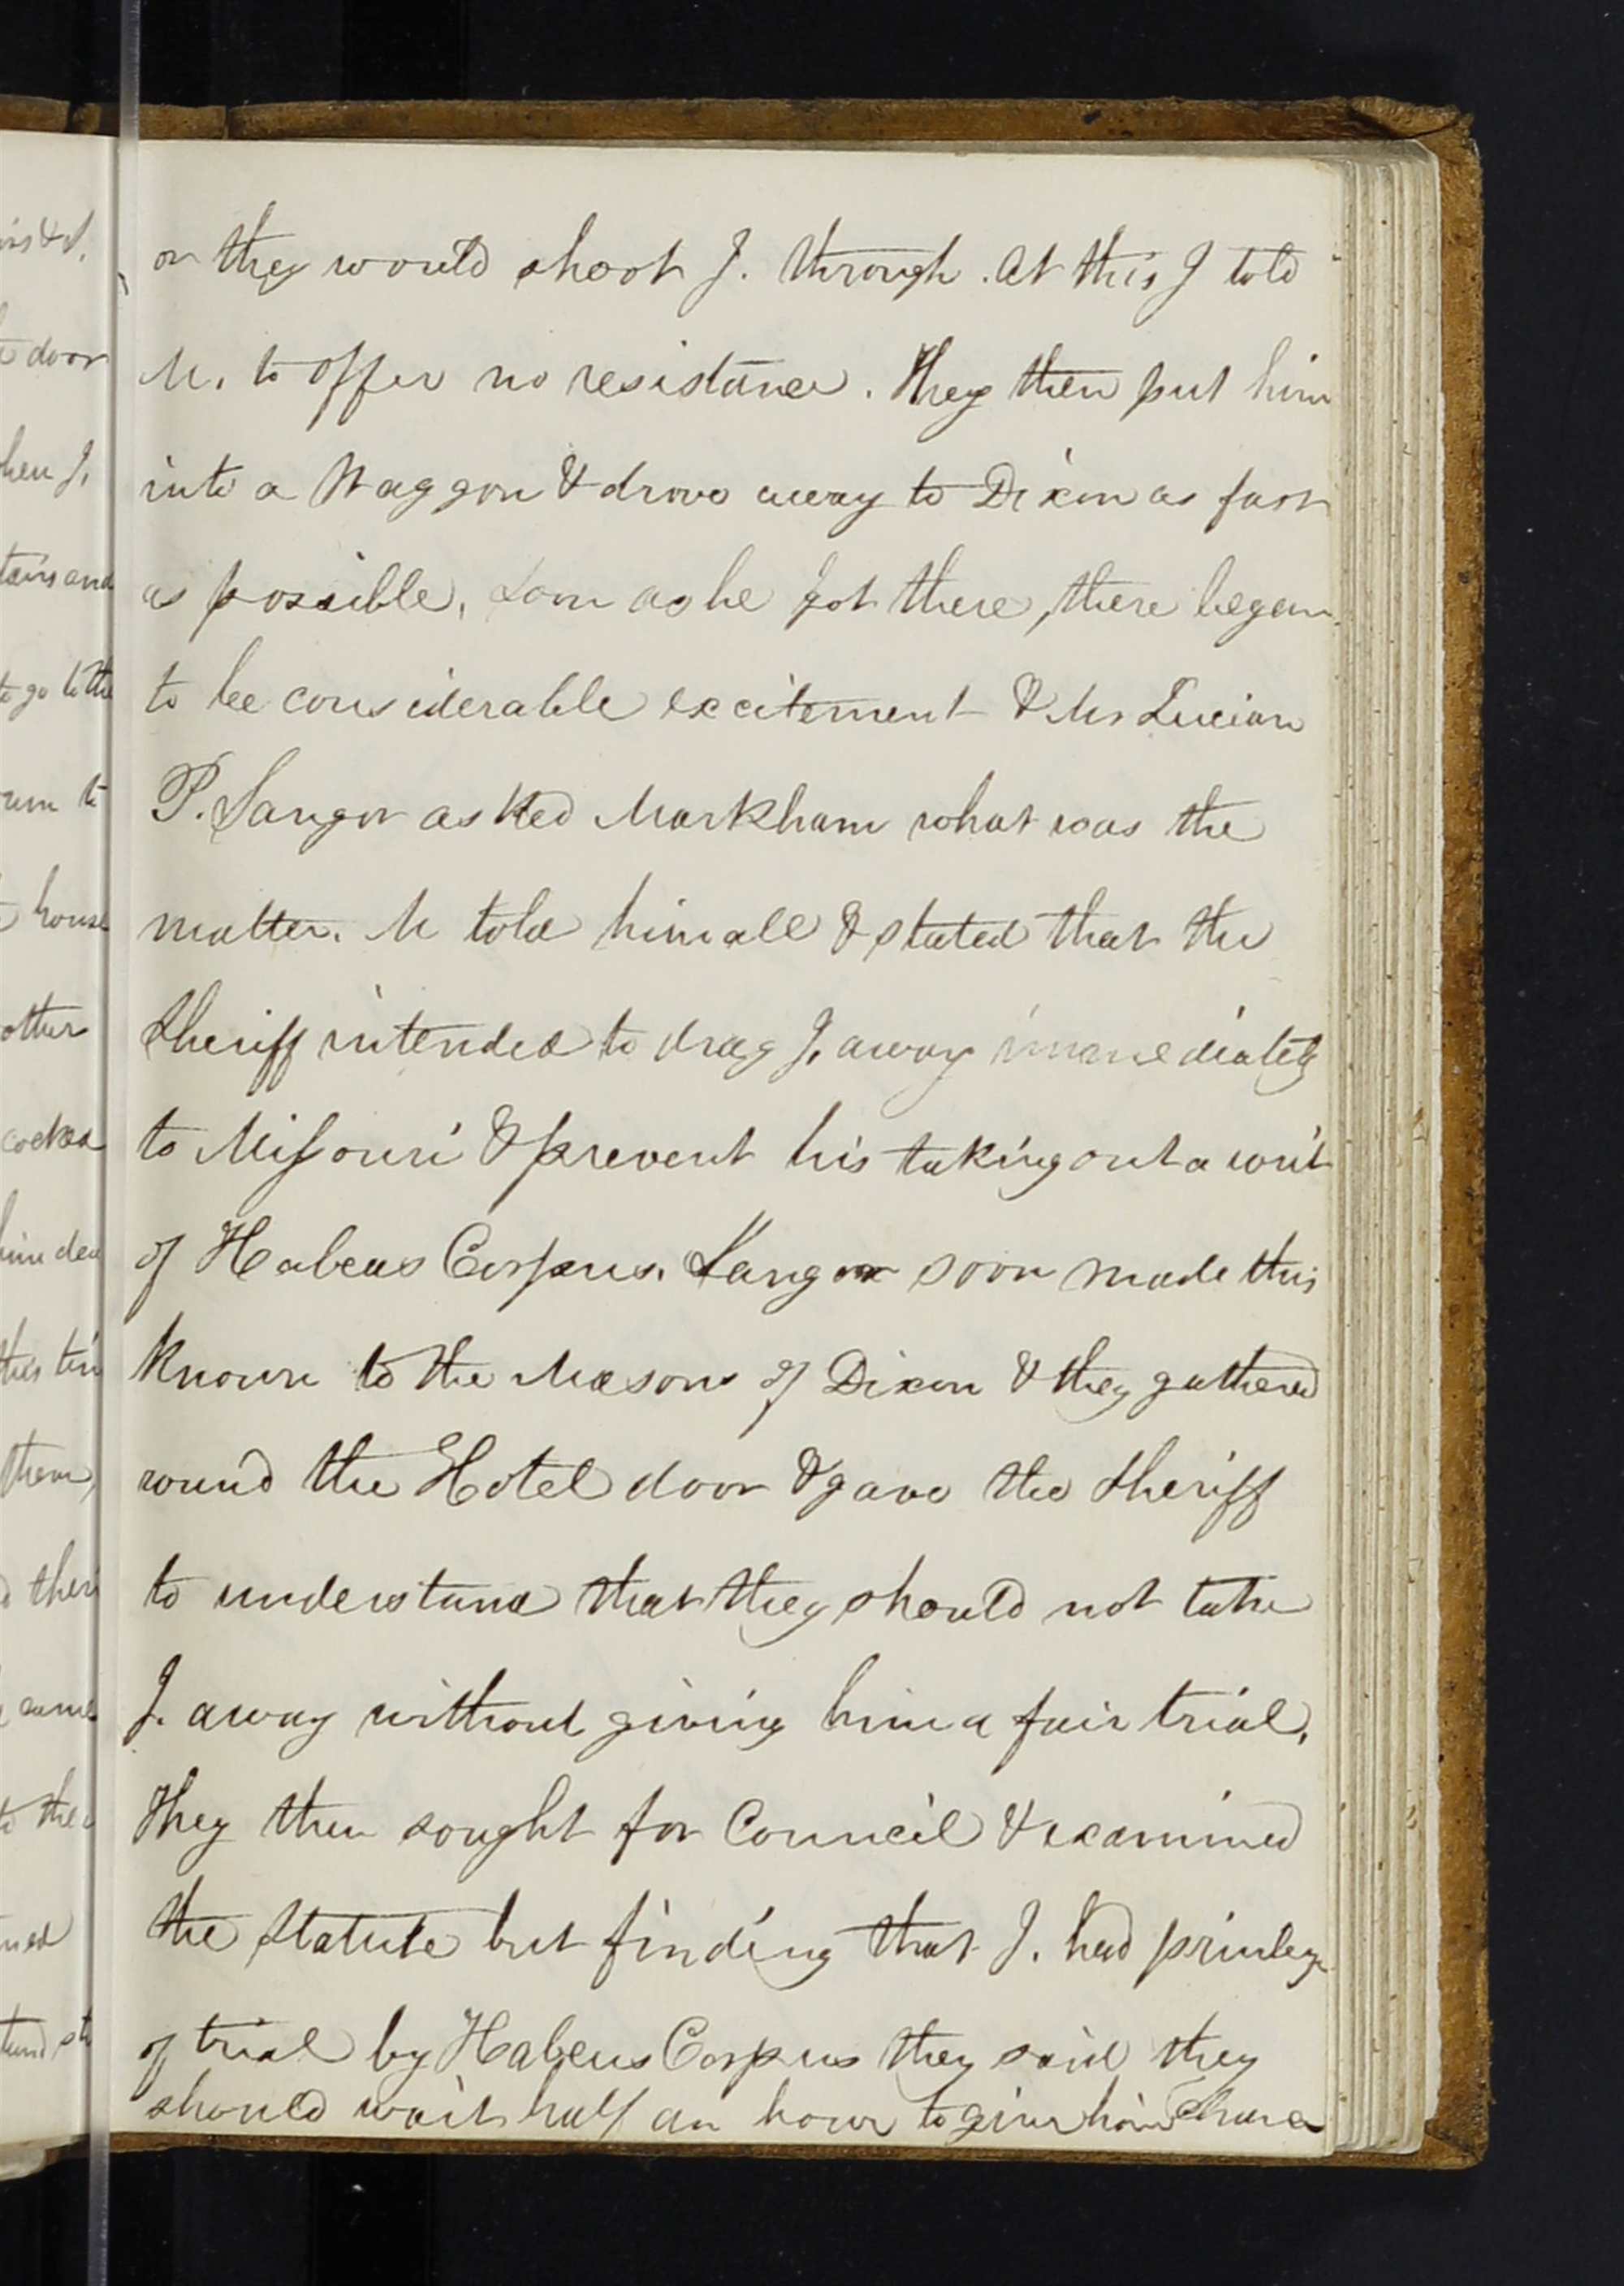 or they would shoot J. through. At this J told
M. to offer no resistance. They then put him
into a Waggon & drove away to Dixon as fast
as possible. Soon as he got there, there began
to be considerable excitement & Mr Lucian
P. Sanger asked Markham what was the
matter. M told him all & stated that the
Sheriff intended to drag J. away immediately
to Missouri & prevent his taking out a writ
of Habeas Corpus. Sanger soon made this
known to the Masons of Dixon & they gathered
round the Hotel door & gave the Sheriff
to understand that they should not take
J. away without giving him a fair trial.
They then sought for Council & examined
the Statute but finding that J. had privilege
of trial by Habeus Corpus they said they
should wait half an hour to give him Chance